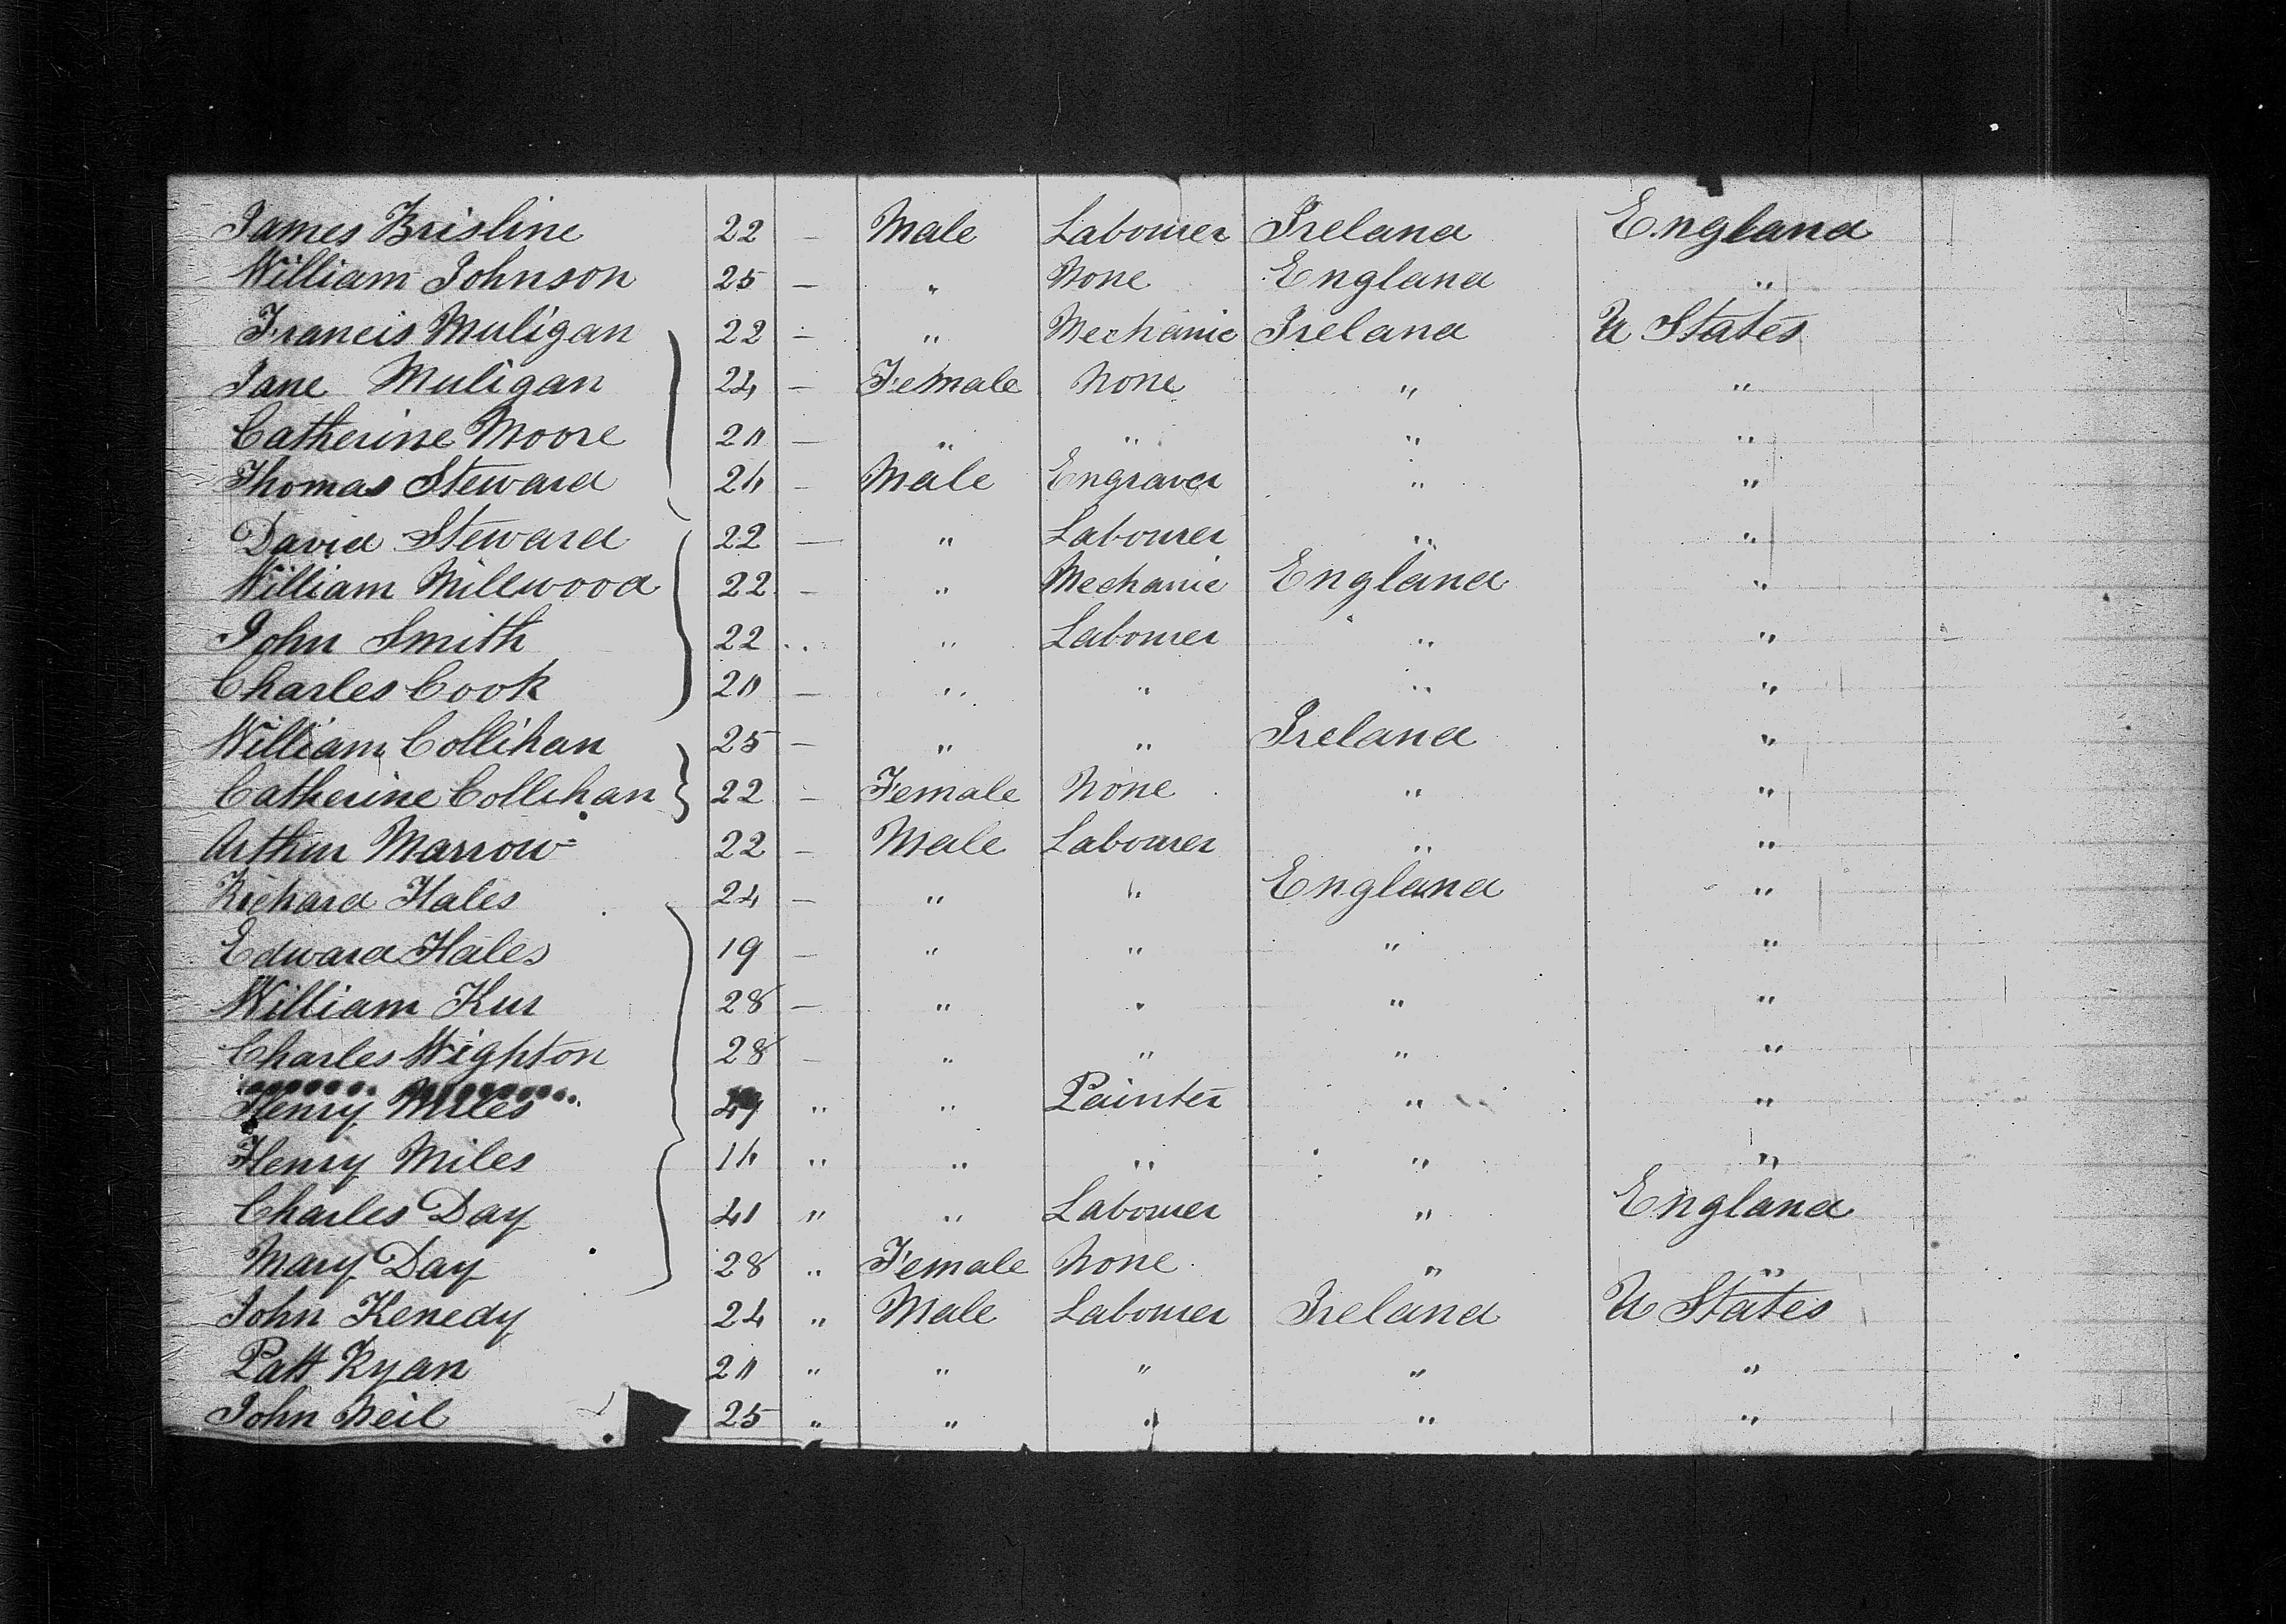 James Brisline 22 — Male Labourer Ireland England
William Johnson 25 — " None England "
Francis Muligan 22 — " Mechanic Ireland U States
Jane Muligan 24 — Female None " "
Catherine Moore 20 — " " " "
Thomas Steward 26 — Male Engraver " "
David Steward 22 — " Labourer " "
William Millwood 22 — " Mechanic England "
John Smith 22 " " Labourer " "
Charles Cook 20 — " " " "
William Collihan 25 — " " Ireland "
Catherine Collihan 22 — Female None " "
Arthur Marrow 22 — Male Labourer " "
Richard Hales 24 — " " England "
Edward Hales 19 — " " " "
William Kur 28 — " " " "
Charles Wighton 28 — " " " "
Henry Miles " " Painter " "
Henry Miles 16 " " " " "
Charles Day 40 " " Labourer " England
Mary Day 28 " Female None " "
John Kenedy 24 " Male Labourer Ireland U States
Patt Ryan 20 " " " " "
John Neil 25 " " " " "